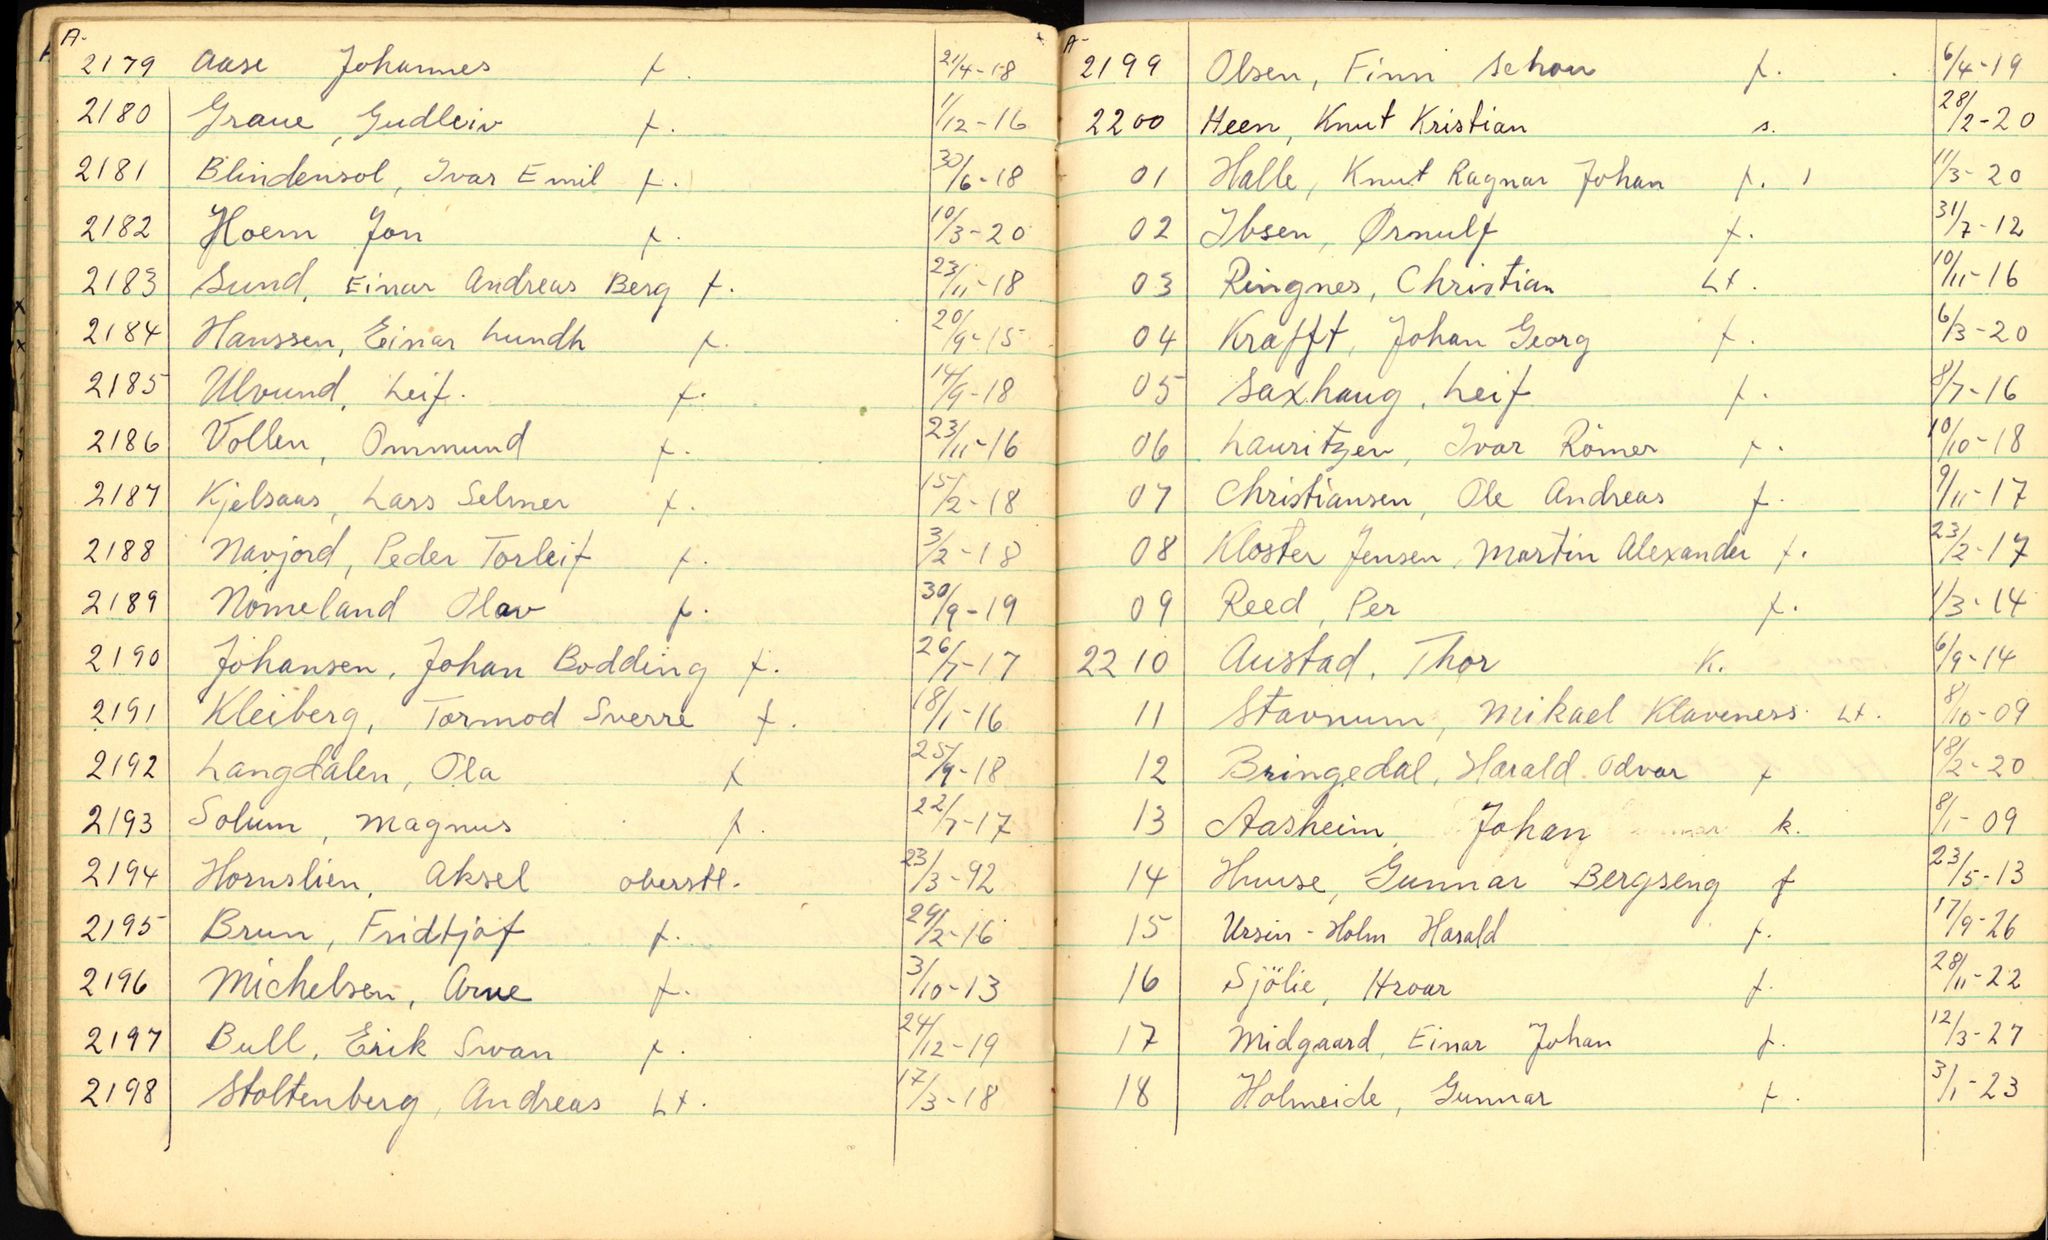 A-
2179 Aase Johannes f. 21/4-18
2180 Graue, Gudleiv f. 1/12-16
2181 Blindensol, Ivar Emil f. 30/6-18
2182 Hoem Jon f. 10/3-20
2183 Sund, Einar Andreas Berg f. 23/11-18
2184 Hanssen, Einar Lundh f. 20/9-15
2185 Ulvund, Leif. f. 14/9-18
2186 Vollen, Ommund f. 23/11-16
2187 Kjelsaas, Lars Selmer f. 15/2-18
2188 Navjord, Peder Torleif f. 3/2-18
2189 Nomeland Olav f. 30/9-19
2190 Johansen, Johan Bodding f. 26/7-17
2191 Kleiberg, Tormod Sverre f. 18/1-16
2192 Langdalen, Ola f 25/9-18
2193 Solum, Magnus f. 22/7-17
2194 Hornslien, Aksel oberstl. 23/3-92
2195 Brun, Fridtjof f. 29/2-16
2196 Michelsen, Arne f. 3/10-13
2197 Bull, Erik Swan f. 24/12-19
2198 Stoltenberg, Andreas Lt. 17/3-18
A-
2199 Olsen, Finn Schou f. 6/4-19
2200 Heen, Knut Kristian s. 28/2-20
01 Halle, Knut Ragnar Johan f. 11/3-20
02 Ibsen, Ørnulf f. 31/7-12
03 Ringnes, Christian Lt. 10/11-16
04 Krafft, Johan Georg f. 6/3-20
05 Saxhaug, Leif f. 8/7-16
06 Lauritzen, Ivar Römer f. 10/10-18
07 Christiansen, Ole Andreas f. 9/11-17
08 Kloster Jensen, Martin Alexander f. 23/2-17
09 Reed, Per f. 1/3-14
2210 Austad, Thor K. 6/9-14
11 Stavnum, Mikael Klaveness Lt. 8/10-09
12 Bringedal, Harald Odvar f 18/2-20
13 Aasheim Johan k. 8/1-09
14 Huuse, Gunnar Bergseng f 23/5-13
15 Ursin-Holm Harald f. 17/9-26
16 Sjölie, Hroar f. 28/11-22
17 Midgaard, Einar Johan f. 12/3-27
18 Holmeide, Gunnar f. 3/1-23